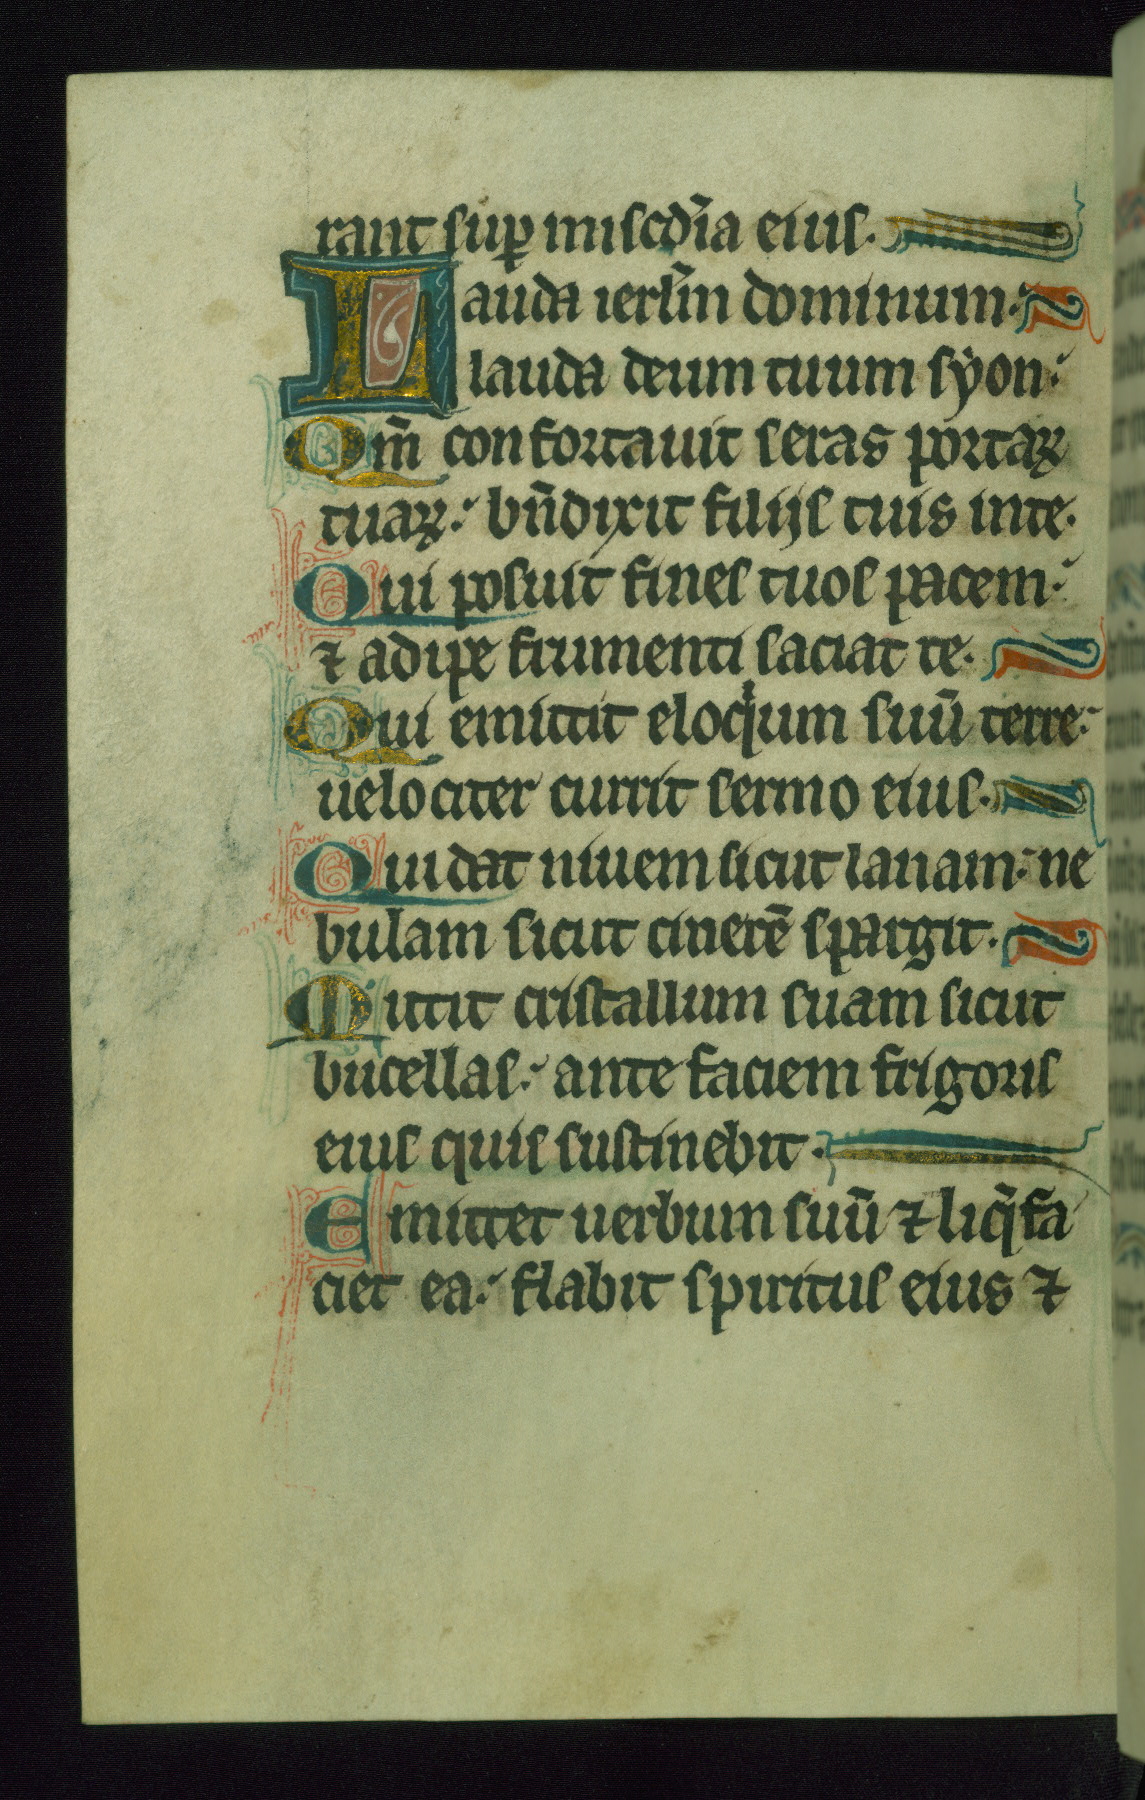 rant sup̱ misc̄dia eius.
Lauda ierl̄m dominum.
lauda deum tuum sẏon.
Qm̄ confortauit seras portaꝝ
tuaꝝ. bn̄dixit filijs tuis in te.
Qui posuit fines tuos pacem.
⁊ adipe frumenti saciat te.
Qui emittit eloqͥum suū terre.
uelociter currit sermo eius.
Qui dat niuem sicut lanam. ne
bulam sicut cinerē spargit.
Mittit cristallum suam sicut
bucellas. ante faciem frigoris
eius quis sustinebit.
Emittet uerbum suū ⁊ liq̄fa
ciet ea. flabit spiritus eius ⁊